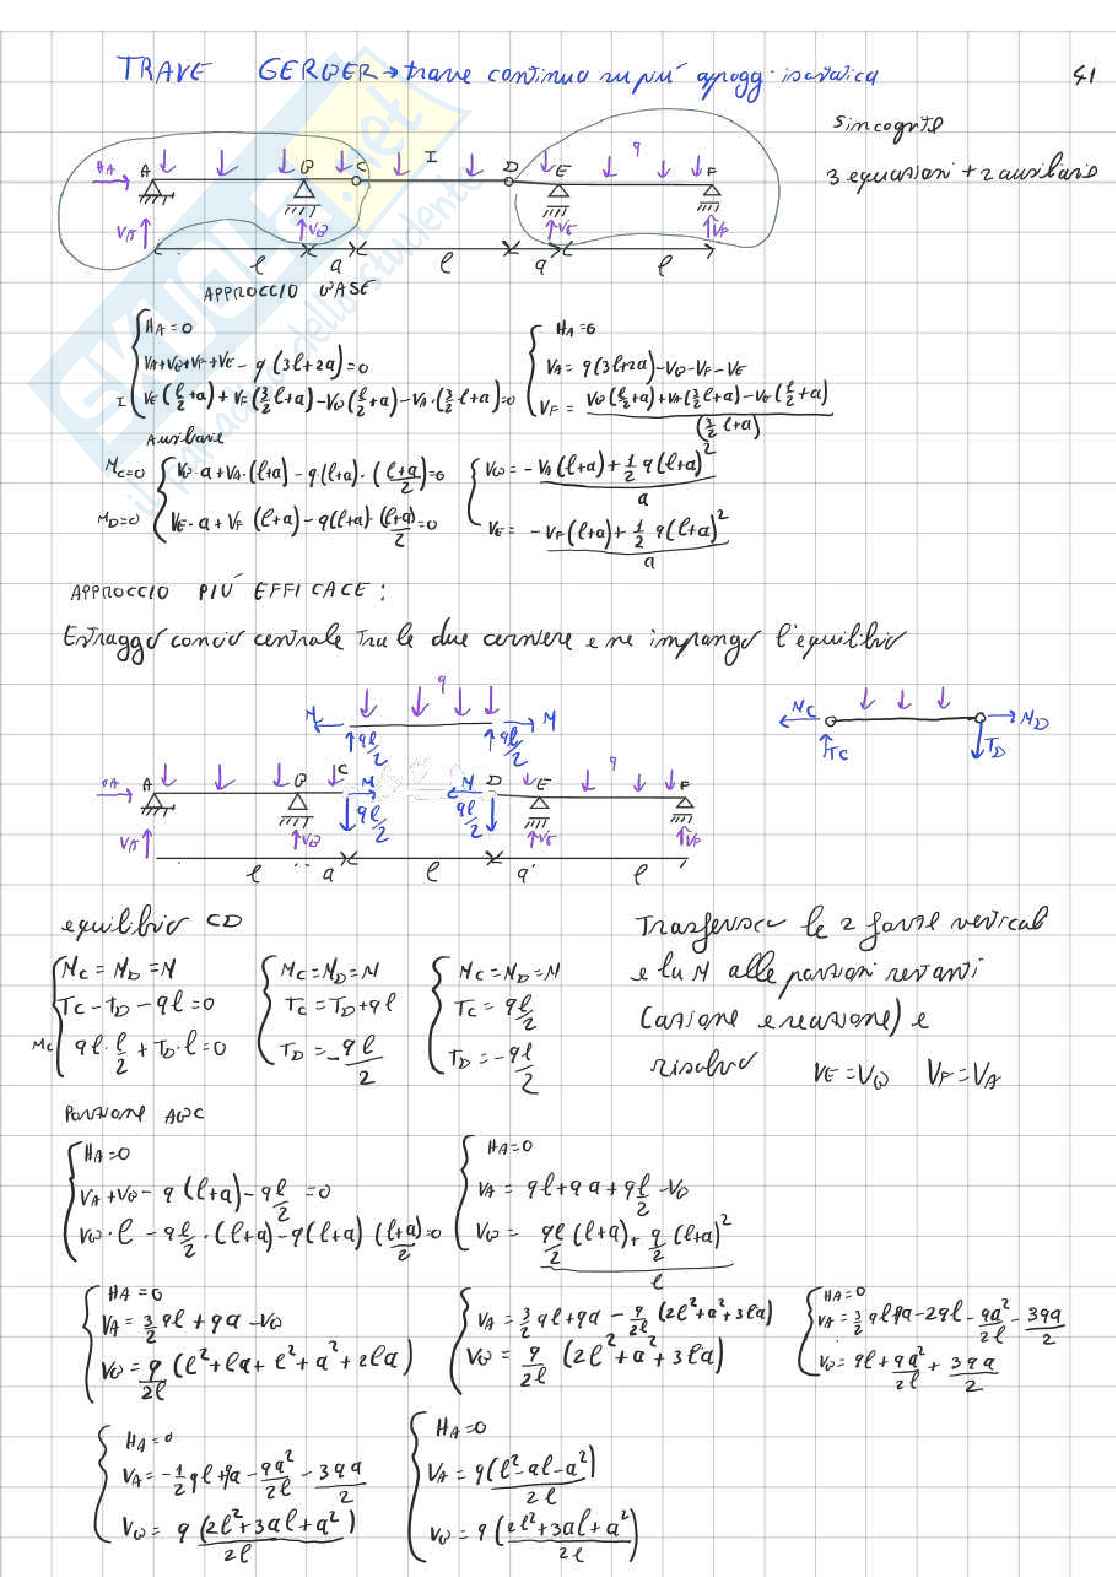 TRAVE GERBER → trave continua su più appogg. isostatica
41
5 incognite
3 equazioni + 2 ausiliarie
HA A B C I D E q F
VA VB VE VF
l a l a l
APPROCCIO BASE
HA = 0
VA+VB+VF+VE - q(3l+2a) = 0
I VE(l/2+a) + VF(3/2 l+a) - VB(l/2+a) - VA·(3/2 l+a) = 0
HA = 0
VA = q(3l+2a) - VB - VF - VE
VF = VB(l/2+a) + VA(3/2 l+a) - VE(l/2+a) / (3/2 l+a)
Ausiliarie
MC=0 VB·a + VA·(l+a) - q(l+a)·(l+a/2) = 0
MD=0 VE·a + VF(l+a) - q(l+a)·(l+a)/2 = 0
VB = -VA(l+a) + 1/2 q(l+a)² / a
VE = -VF(l+a) + 1/2 q(l+a)² / a
APPROCCIO PIÚ EFFICACE:
Estraggo concio centrale tra le due cerniere e ne impongo l'equilibrio
N q N
ql/2 ql/2
NC TC TD ND
HA A B C N N D E q F
VA VB ql/2 ql/2 VE VF
l a l a l
equilibrio CD
NC = ND = N
TC - TD - ql = 0
MC ql·l/2 + TD·l = 0
NC = ND = N
TC = TD + ql
TD = -ql/2
NC = ND = N
TC = ql/2
TD = -ql/2
Trasferisco le 2 forze verticali
e la N alle porzioni restanti
(azione e reazione) e
risolvo VE = VB VF = VA
Porzione ABC
HA = 0
VA + VB - q(l+a) - ql/2 = 0
VB·l - ql/2·(l+a) - q(l+a)(l+a)/2 = 0
HA = 0
VA = ql + qa + ql/2 - VB
VB = ql/2 (l+a) + q/2 (l+a)² / l
HA = 0
VA = 3/2 ql + qa - VB
VB = q/2l (l² + la + l² + a² + 2la)
VA = 3/2 ql + qa - q/2l (2l² + a² + 3la)
VB = q/2l (2l² + a² + 3la)
HA = 0
VA = 3/2 ql + qa - 2ql - qa²/2l - 3qa/2
VB = ql + qa²/2l + 3qa/2
HA = 0
VA = -1/2 ql + qa - qa²/2l - 3qa/2
VB = q(2l² + 3al + a²)/2l
HA = 0
VA = q(l² - al - a²)/2l
VB = q(2l² + 3al + a²)/2l